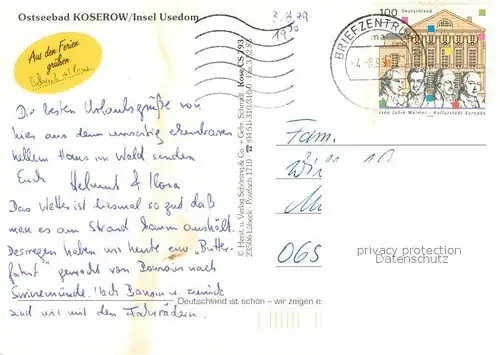 Ostseebad KOSEROW/Insel Usedom
3.8.99
1930
Aus den Ferien
grüßen
Helmut & Ilona
100 Deutschland
BRIEFZENTRUM
1100 Jahre Weimar - Kulturstadt Europas
Die besten Urlaubsgrüße von
hier aus dem
hellem Haus im Wald senden
Euch Helmut & Ilona
Das Wetter ist diesmal so gut, daß
man es am Strand kaum aushält.
Deswegen haben wir heute eine „Butter-
fahrt" gemacht von Bansin nach
Swinemünde. Nach Bansin u. zurück
sind wir mit den Fahrrädern.
© Herst. u. Verlag Schöning & Co. + Gebr. Schmidt
23506 Lübeck · Postfach 1710
Kose CS 93
Fam.
Wi
Mü
065
privacy protection
Datenschutz
Deutschland ist schön – wir zeigen e